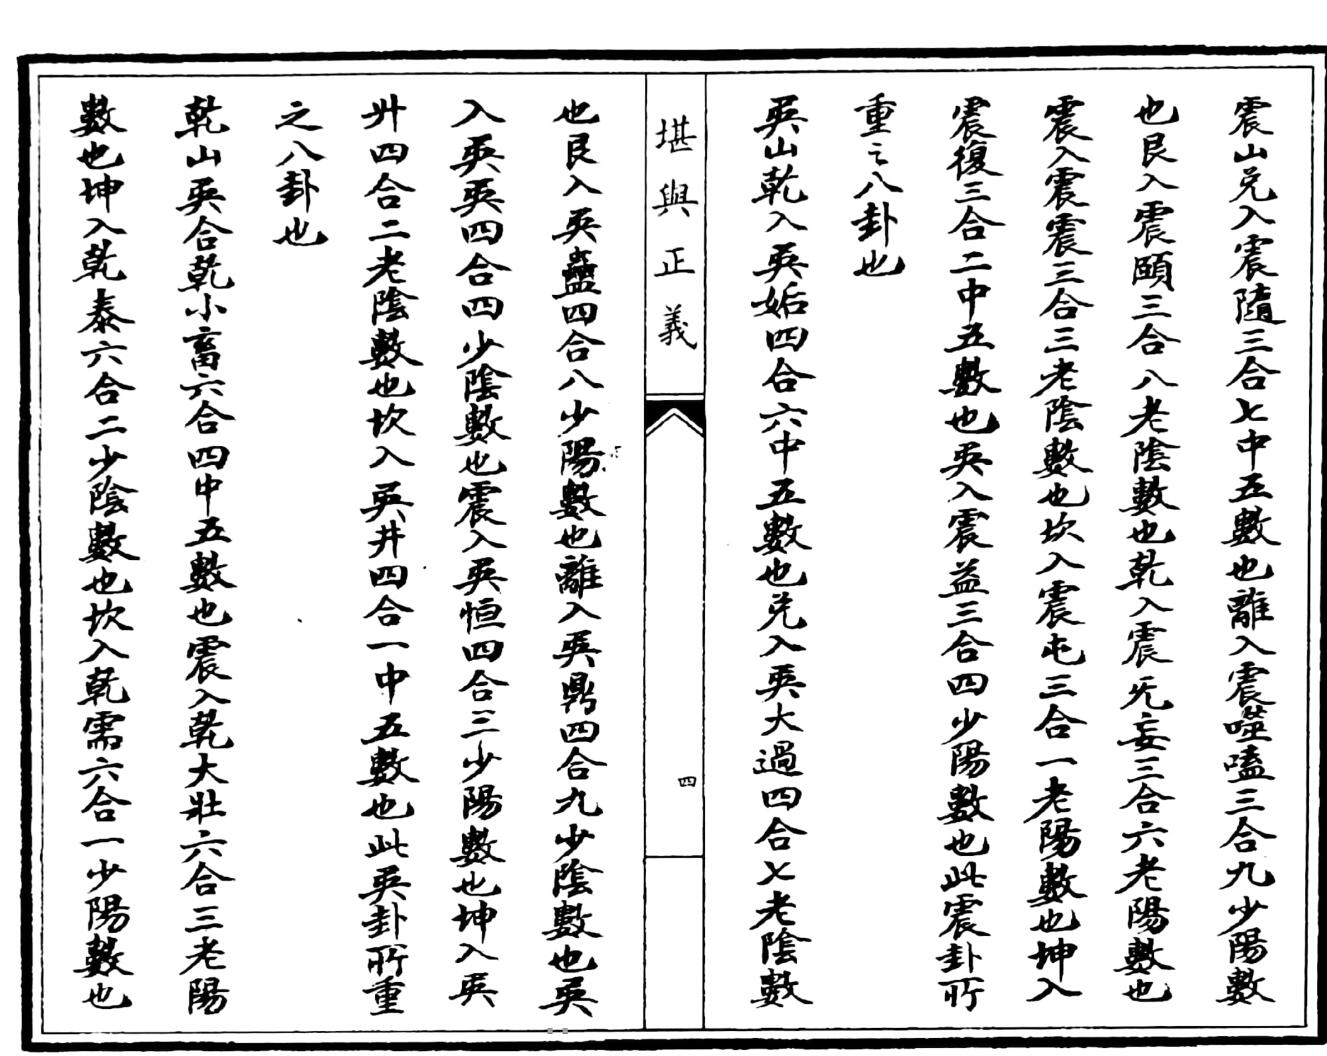 震山兑入震隨三合七中五數也離入震噬嗑三合九少陽數
也艮入震頤三合八老陰數也乾入震旡妄三合六老陽數也
震入震震三合三老陰數也坎入震屯三合一老陽數也坤入
震復三合二中五數也巽入震益三合四少陽數也此震卦所
重之八卦也
巽山乾入巽姤四合六中五數也兑入巽大過四合七老陰數
堪輿正義
四
也艮入巽蠱四合八少陽數也離入巽鼎四合九少陰數也巽
入巽巽四合四少陰數也震入巽恒四合三少陽數也坤入巽
升四合二老陰數也坎入巽井四合一中五數也此巽卦所重
之八卦也
乾山巽合乾小畜六合四中五數也震入乾大壯六合三老陽
數也坤入乾泰六合二少陰數也坎入乾需六合一少陽數也